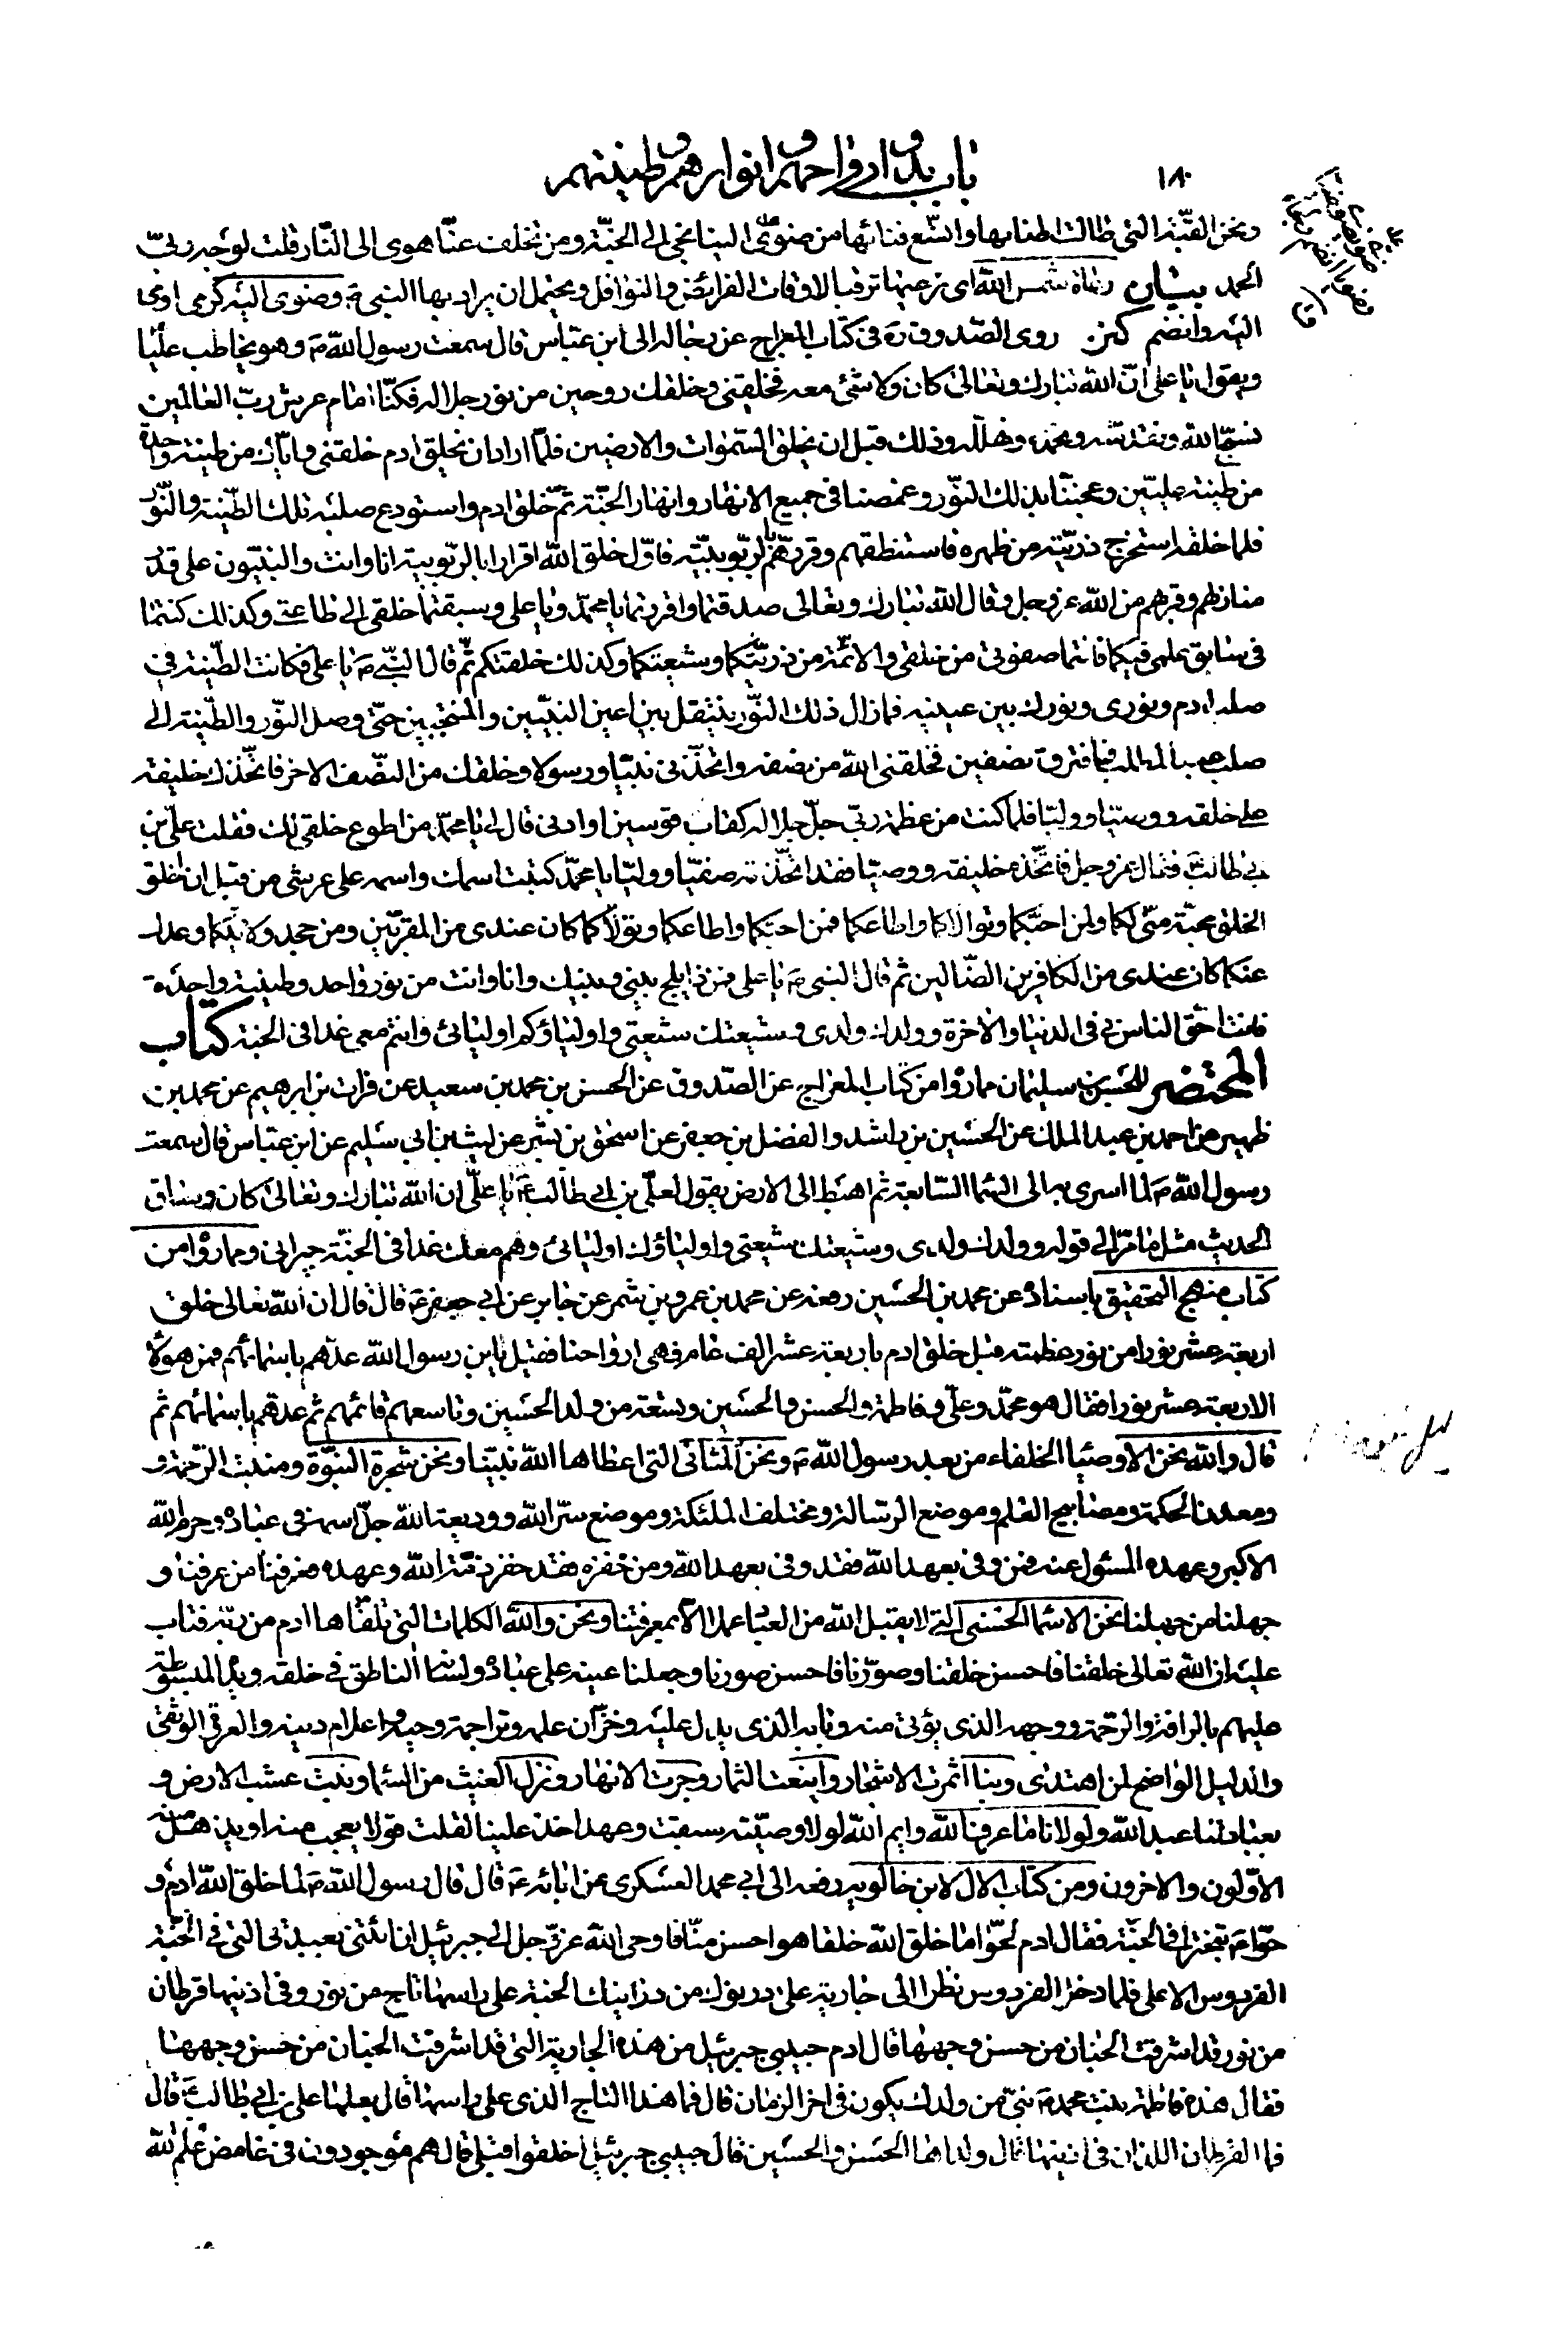 ١٨٠
باب بدو ارواحهم و انوارهم و طينتهم
ونحن القبّة التى طالت اطنابها واتّسع فنائها من ضوى الينا نجى الى الجنّة ومن تخلف عنّا هوى الى النّار قلت لوجه ربّى
الحمد بيان رعاة شمس الله اى نرعيها ترقبا لاوقات الفرائض والنوافل ويحتمل ان يراد بها النبى ص وضوى اليه كرمى اوى
اليه وانضم كنز روى الصّدوق ره فى كتاب المعراج عن رجاله الى ابن عبّاس قال سمعت رسول الله ص وهو يخاطب عليّا
ويقول يا على انّ الله تبارك وتعالى كان ولا شئ معه فخلقنى وخلقك روحين من نور جلاله فكنّا امام عرش ربّ العالمين
نسبّح الله ونقدّسه ونحمده ونهلله وذلك قبل ان يخلق السّموات والارضين فلمّا اراد ان يخلق ادم خلقنى وايّاك من طينة واحدة
من طينة عليّين وعجننا بذلك النّور وغمسنا فى جميع الانهار وانهار الجنّة ثمّ خلق ادم واستودع صلبه تلك الطّينة والنّور
فلما خلقه استخرج ذريّته من ظهره فاستنطقهم وقررهم بالربوبيّة فاوّل خلق الله اقرارا بالربّوبية انا وانت والنبيّون على قدر
منازلهم وقربهم من الله عز وجل فقال الله تبارك وتعالى صدقتما واقررتما يا محمّد ويا على وسبقتما خلقى الى طاعتى وكذلك كنتما
فى سابق علمى فيكما فانتما صفوتى من خلقى والائمّة من ذريّتكما وشيعتكما وكذلك خلقتكم ثمّ قال النبى ص يا على فكانت الطّينة فى
صلب ادم ونورى ونورك بين عينيه فما زال ذلك النّور ينتقل بين اعين النبيّين والمنتجبين حتّى وصل النّور والطّينة الى
صلب عبد المطلب فافترق نصفين فخلقنى الله من نصفه واتخّذنى نبيّا ورسولا وخلقك من النصّف الاخر فاتخّذك خليفة
على خلقه ووصيّا ووليّا فلما كنت من عظمة ربّى جلّ جلاله كقاب قوسين او ادنى قال لى يا محمّد من اطوع خلقى لك فقلت علىّ بن
ابى طالب فقال عز وجل فاتّخذه خليفة ووصيّا فقد اتخّذته صفيّا ووليّا يا محمّد كتبت اسمك واسمه على عرشى من قبل ان اخلق
الخلق محبّة منّى لكما ولمن احبّكما وتولاكما واطاعكما فمن احبّكما واطاعكما وتولاّكما كان عندى من المقربّين ومن جحد ولايتكما وعدل
عنكما كان عندى من الكافرين الضّالين ثم قال النبى ص يا على فمن ذا يلج بينى وبينك وانا وانت من نور واحد وطينة واحدة
فانت احق الناس بى فى الدنيا والاخرة وولدك ولدى وشيعتك شيعتى واولياؤكم اوليائى وانتم معى غدا فى الجنة كتاب
المحتضر للحسن بن سليمان مما رواه من كتاب المعراج عن الصّدوق عن الحسن بن محمد بن سعيد عن فرات بن ابرهيم عن محمد بن
ظهير عن احمد بن عبد الملك عن الحسين بن راشد والفضل بن جعفر عن اسحق بن بشر عن ليث بن ابى سليم عن ابن عباس قال سمعت
رسول الله ص لما اسرى به الى السّماء السّابعة ثم اهبط الى الارض يقول لعلىّ بن ابى طالب ع يا علىّ ان الله تبارك وتعالى كان وساق
الحديث مثل ما مرّ الى قوله وولدك ولدى وشيعتك شيعتى واولياؤك اوليائى وهم معك غدا فى الجنّة جيرانى ومما رواه من
كتاب منهج التحقيق باسناده عن محمد بن الحسين رفعه عن محمد بن عمرو بن شمر عن جابر عن ابى جعفر ع قال قال ان الله تعالى خلق
اربعة عشر نورا من نور عظمته قبل خلق ادم باربعة عشر الف عام فهى ارواحنا فقيل يابن رسول الله عدهم باسمائهم فمن هؤلاء
الاربعة عشر نورا فقال هو محمّد وعلىّ وفاطمة والحسن والحسين وتسعة من ولد الحسين وتاسعهم قائمهم ثم عدهم باسمائهم ثم
قال والله نحن الاوصياء الخلفاء من بعد رسول الله ص ونحن المثانى التى اعطاها الله نبيّنا ونحن شجرة النبوّة ومنبت الرّحمة و
ومعدن الحكمة ومصابيح العلم وموضع الرسّالة ومختلف الملئكة وموضع سرّ الله ووديعة الله جلّ اسمه فى عباده وحرم الله
الاكبر وعهده المسئول عنه فمن وفى بعهد الله فقد وفى بعهد الله ومن خفره فقد خفر ذمّة الله وعهده عرفنا من عرفنا و
جهلنا من جهلنا نحن الاسماء الحسنى التى لا يقبل الله من العباد عملا الا بمعرفتنا ونحن والله الكلمات التى تلقّاها ادم من ربّه فتاب
عليه ان الله تعالى خلقنا فاحسن خلقنا وصوّرنا فاحسن صورنا وجعلنا عينه على عباده ولسانه الناطق فى خلقه ويده المبسوطة
عليهم بالرافة والرحّمة ووجهه الذى يؤتى منه وبابه الذى يدل عليه وخزّان علمه وتراجمة وحيه واعلام دينه والعروة الوثقى
والدليل الواضح لمن اهتدى وبنا اثمرت الاشجار واينعت الثمار وجرت الانهار ونزل الغيث من السّماء ونبت عشب الارض و
بعبادتنا عبد الله ولولانا ما عرف الله وايم الله لولا وصيّة سبقت وعهد اخذ علينا لقلت قولا يعجب منه او يذهل منه
الاوّلون والاخرون ومن كتاب الال لابن خالويه رفعه الى ابى محمد العسكرى عن ابائه ع قال قال رسول الله ص لما خلق الله ادم و
حوّاء ع تبخترا فى الجنّة فقال ادم لحوّاء ما خلق الله خلقا هو احسن منّا فاوحى الله عز وجل الى جبرئيل ان ائتنى بعبدتى التى فى الجنّة
الفردوس الاعلى فلما دخلا الفردوس نظرا الى جارية على درنوك من درانيك الجنة على راسها تاج من نور وفى اذنيها قرطان
من نور قد اشرقت الجنان من حسن وجهها قال ادم حبيبى جبرئيل من هذه الجارية التى قد اشرقت الجنان من حسن وجهها
فقال هذه فاطمة بنت محمد ص نبىّ من ولدك يكون فى اخر الزمان قال فما هذا التاج الذى على راسها قال بعلها على بن ابى طالب ع قال
فما القرطان اللذان فى اذنيها قال ولداها الحسن والحسين قال حبيبى جبرئيل اخلقوا قبلى قال هم موجودون فى غامض علم الله